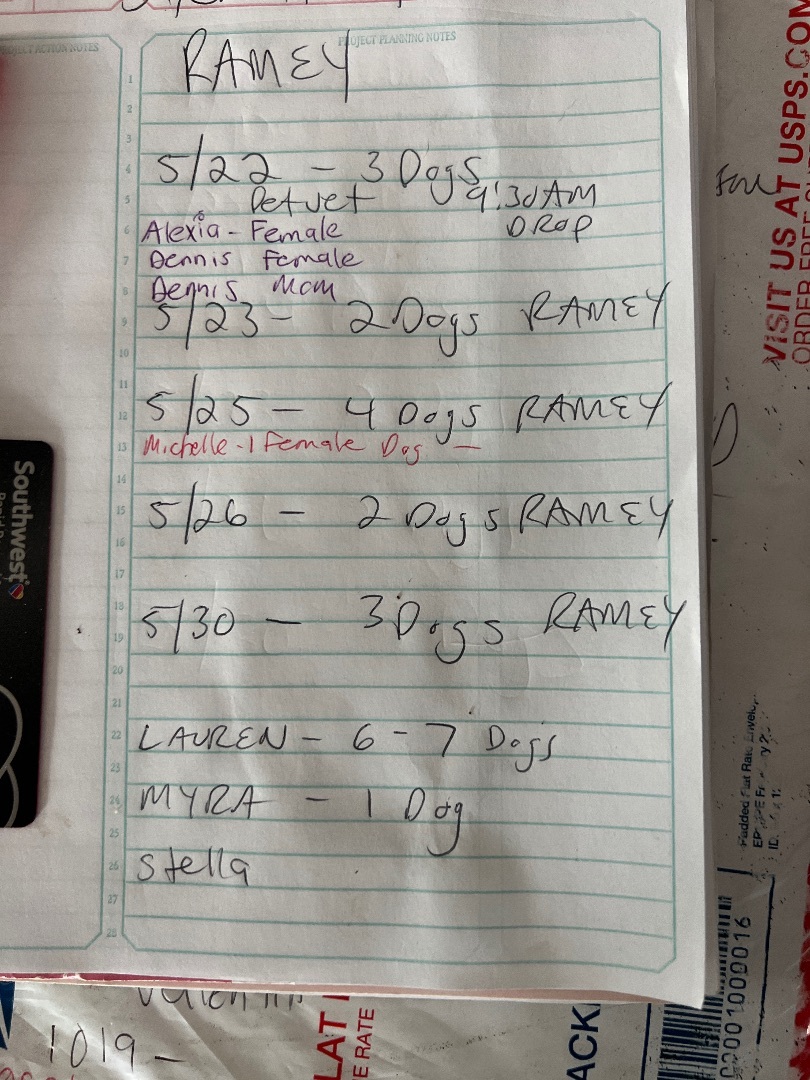 PROJECT ACTION NOTES
PROJECT PLANNING NOTES
RAMEY
5/22 - 3 Dogs
Petvet 9:30 AM
Alexia - Female DROP
Dennis Female
Dennis Mom
5/23 - 2 Dogs RAMEY
5/25 - 4 Dogs RAMEY
Michelle - 1 Female Dog -
5/26 - 2 Dogs RAMEY
5/30 - 3 Dogs RAMEY
LAUREN - 6 - 7 Dogs
MYRA - 1 Dog
Stella
1
2
3
4
5
6
7
8
9
10
11
12
13
14
15
16
17
18
19
20
21
22
23
24
25
26
27
28
Southwest
VISIT US AT USPS.COM
Padded Flat Rate Envelope
ID
1019 -
LAT
E RATE
ACK
0001000016